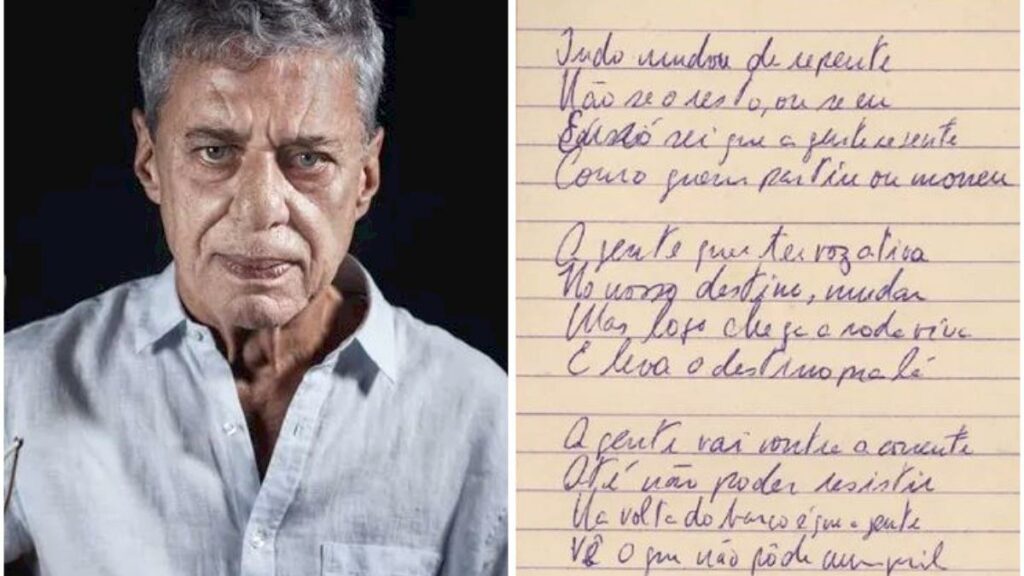 Tudo mudou de repente
Não sei o resto, ou se eu
só sei que a gente se sente
Como quem partiu ou morreu
A gente quer ter voz ativa
No nosso destino, mudar
Mas logo chega a roda viva
E leva o destino pra lá
A gente vai contra a corrente
Até não poder resistir
Na volta do barco é que a gente
vê o que não pôde cumprir